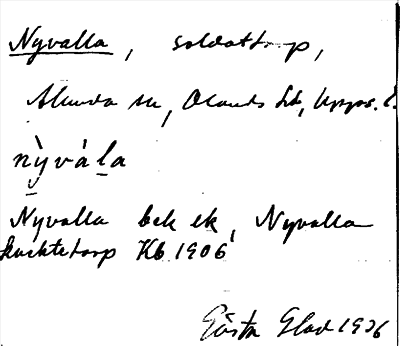 Nyvalla, soldattorp,
Alunda sn, Olands hd, Upps. l.
nỳvála
Nyvalla bek ek, Nyvalla
knektetorp Kb 1906
Gösta Glad 1926